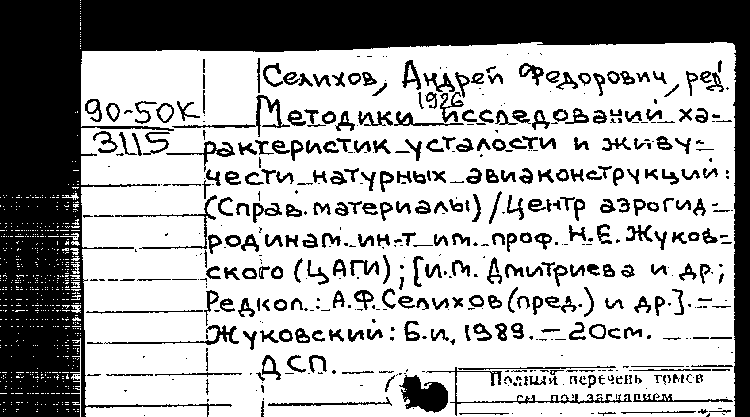 Селихов, Андрей Федорович, ред.
1926
90-50К Методики исследований ха-
3115 рактеристик усталости и живу-
чести натурных авиаконструкций:
(Справ. материалы) / Центр аэрогид-
родинам. ин-т им. проф. Н.Е. Жуков-
ского (ЦАГИ); [И.М. Дмитриева и др.;
Редкол.: А.Ф. Селихов (пред.) и др.]. –
Жуковский: Б.и., 1989. – 20см.
ДСП.
Полный перечень томов
см. под заглавием